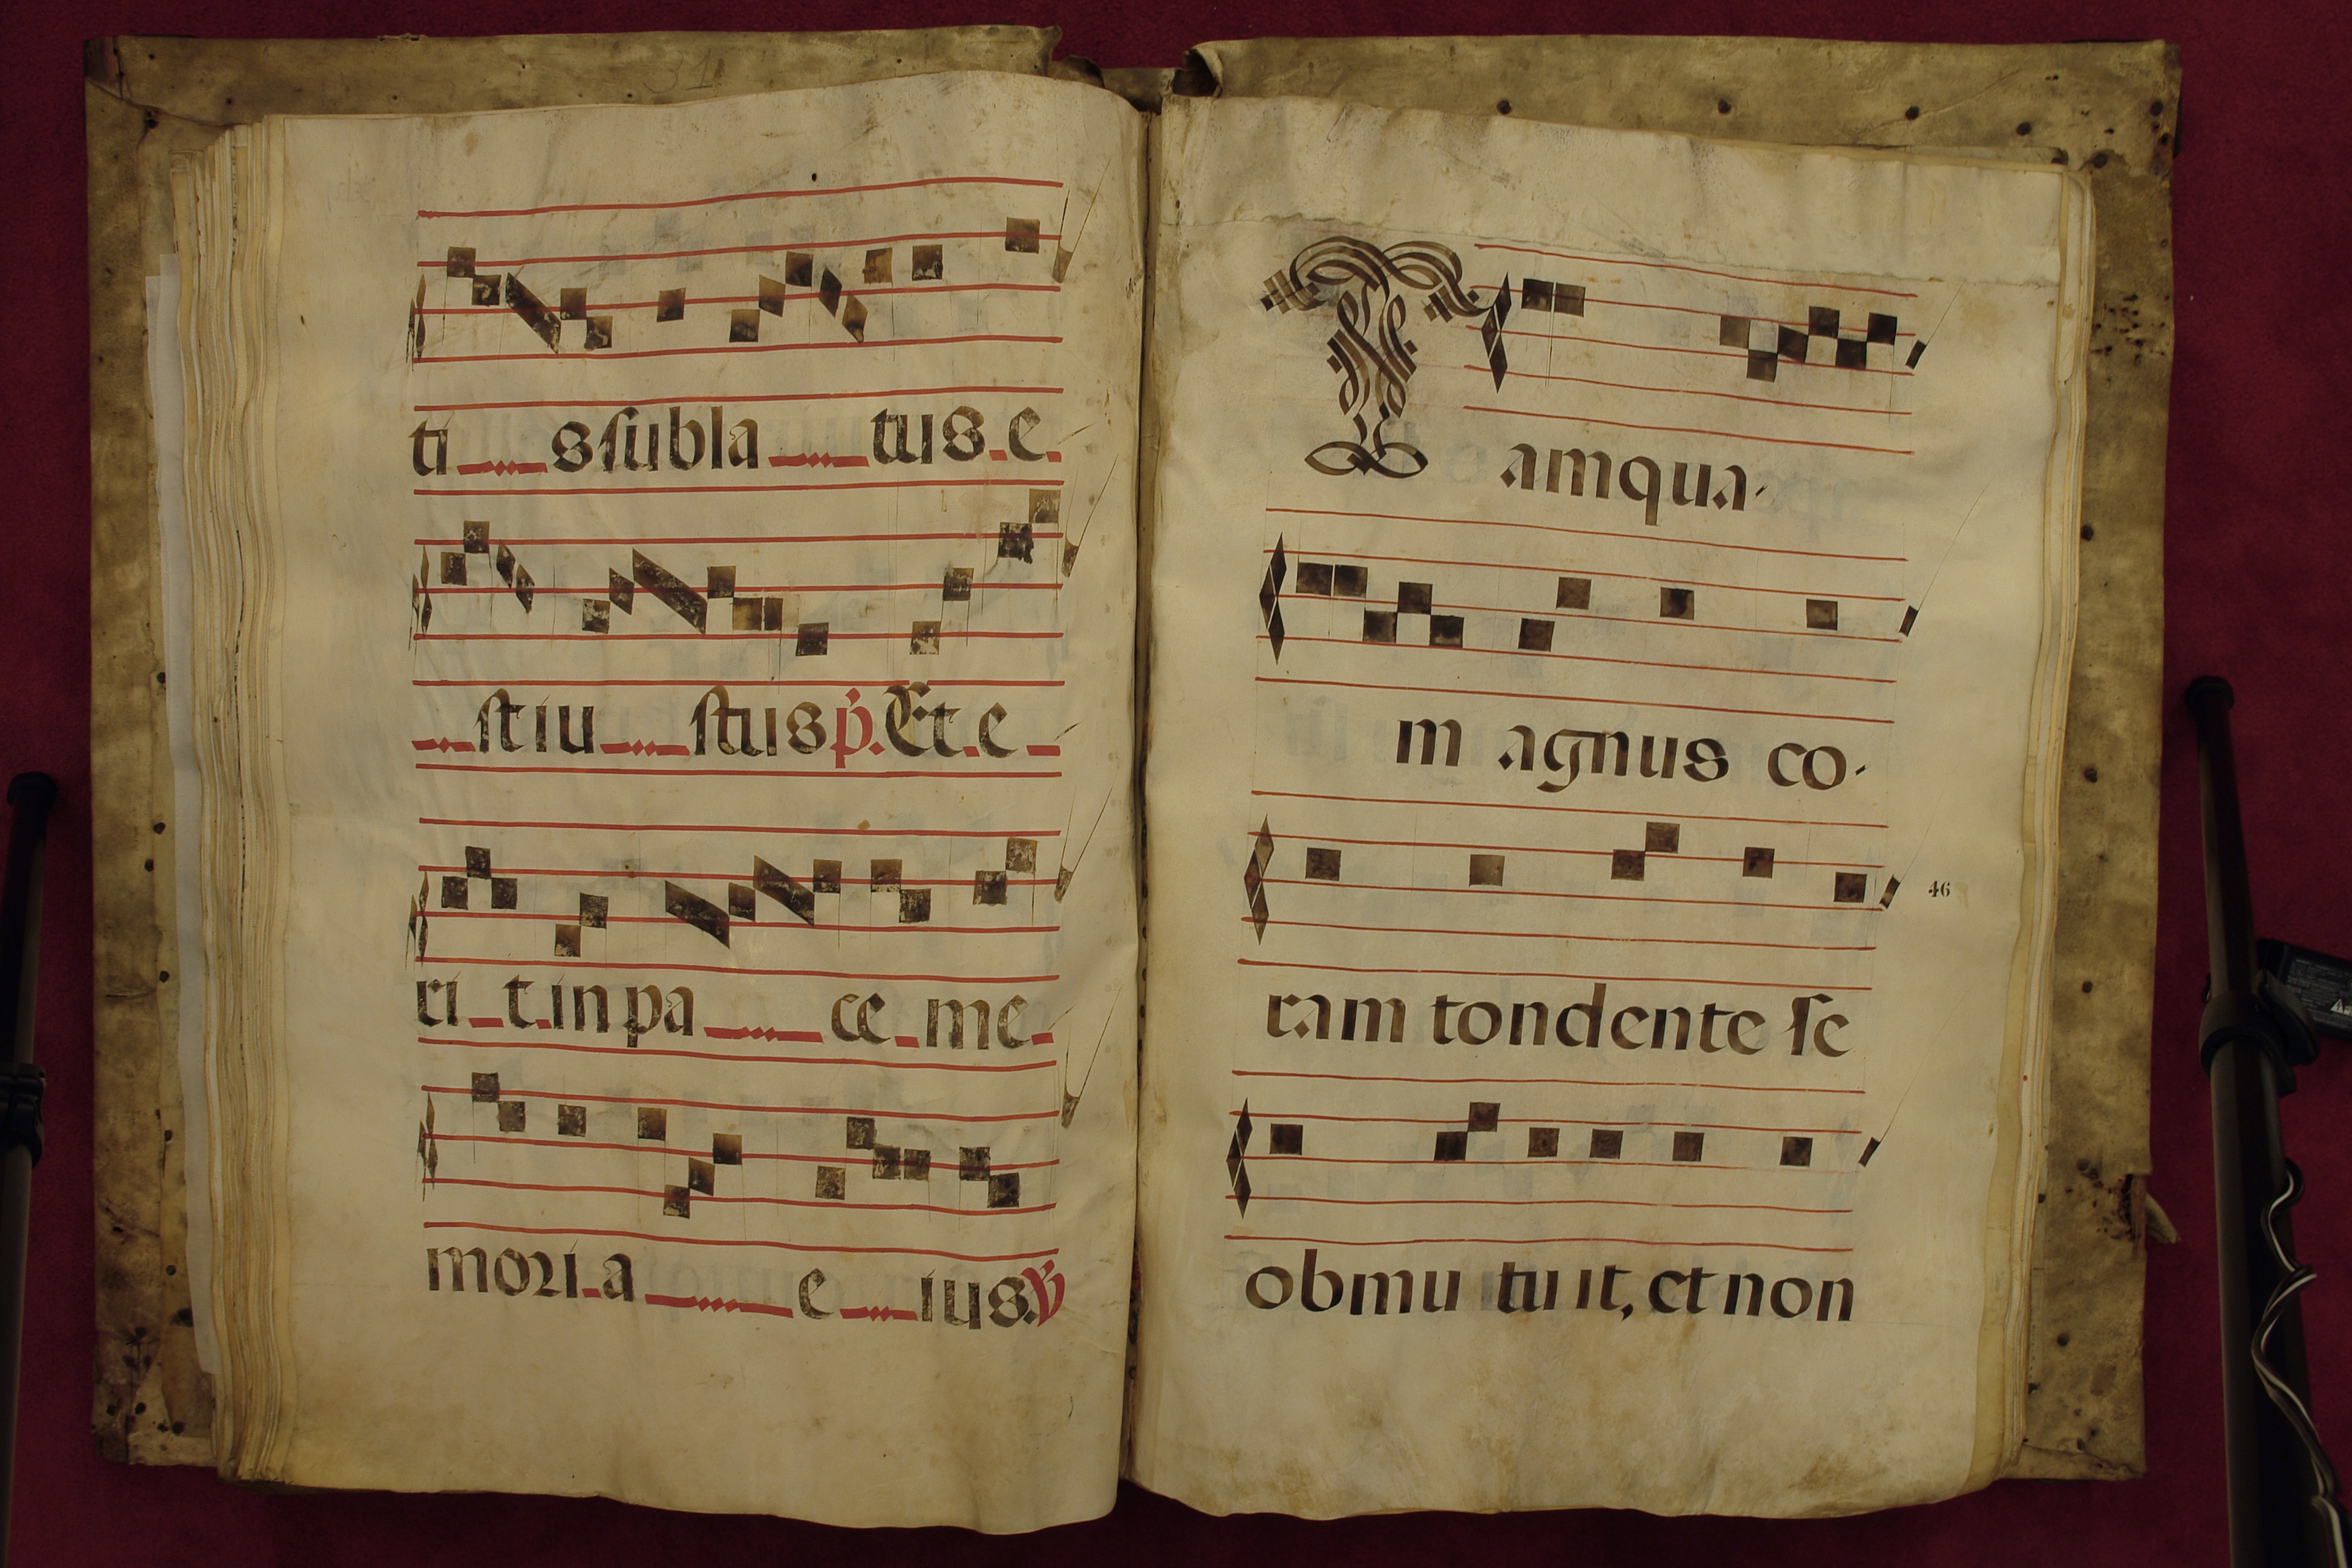 31
ti sſubla tus e
ſtiu ſtus p̓. Et e
ri t in pa ce me
mori a e ius. ℣
Tamqua-
m agnus co-
ram tondente ſe
46
obmu tuit, et non